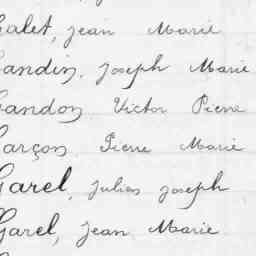 Galet, Jean Marie
Gandin, Joseph Marie
Gandon Victor Pierre
Garçon, Pierre Marie
Garel, Julien Joseph
Garel, Jean Marie